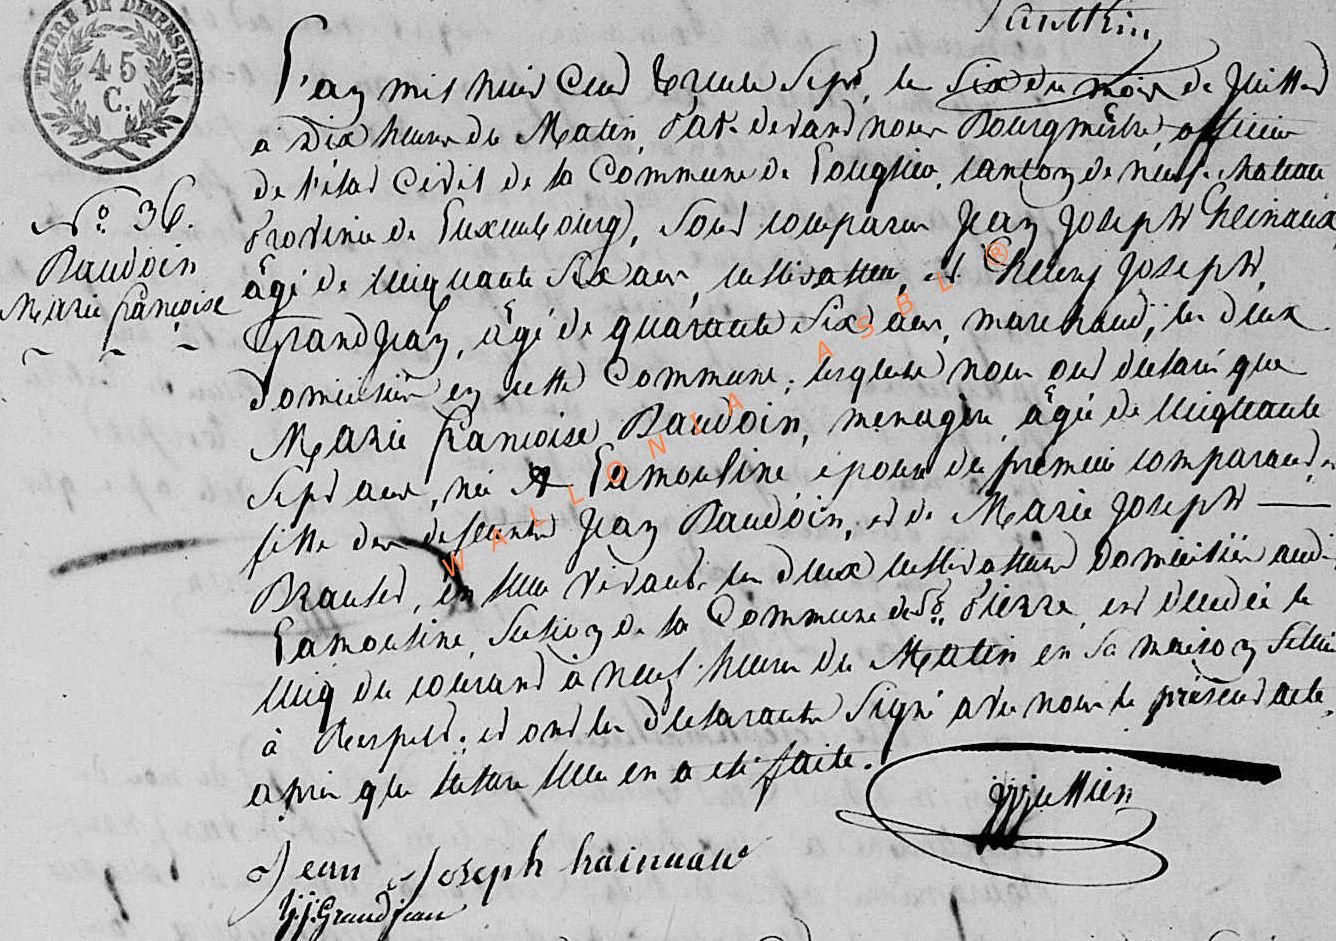 TIMBRE DE DIMENSION
45
C.
L'an mil huit cent trente sept, le six du mois de juillet
à dix heures du matin, par devant nous Bourgmestre, officier
de l'état civil de la Commune de Longlier, canton de neufchateau
Province de Luxembourg, sont comparus Jean Joseph Heinaux
âgé de cinquante six ans, cultivateur, et Henry Joseph
Grandjean, âgé de quarante six ans, marchand, les deux
domiciliés en cette Commune; lesquels nous ont déclaré que
Marie françoise Baudoin, menagère, âgée de cinquante
sept ans, née à Lamouline épouse du premier comparant,
fille des défunts Jean Baudoin, et de Marie Joseph
en leur vivant les deux cultivateurs domiciliés audit
Lamouline, Section de la Commune de St. Pierre, est décédée le
cinq du courant à neuf heures du matin en sa maison sitüée
à Respelt; et ont les déclarants signé avec nous le présent acte,
après que lecture leur en a été faite.
No. 36.
Baudoin
Marie françoise
Jean Joseph hainuaux
h.j. Grandjean
WALLONIA ASBL ®